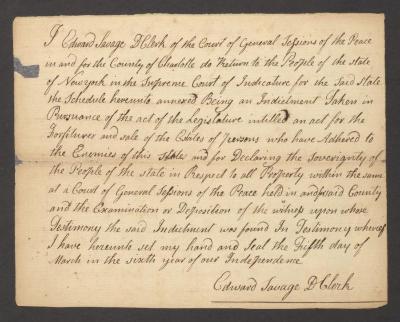 I Edward Savage D Clerk of the Court of General Sessions of the Peace
in and for the County of Charlotte do Return to the People of the state
of New york in the Supreme Court of Judicature for the Said State
the Schedule hereunto annexed Being an Indictment Taken in
Pursuance of the act of the Legislature intitled an act for the
Forfeiture and sale of the Estates of Persons who have Adhered to
the Enemies of this state and for Declaring the Sovereignty of
the People of the state in Respect to all Property within the same
at a Court of General Sessions of the Peace held in and said County
and the Examination or Deposition of the witness upon whose
Testimony the said Indictment was found In Testimony whereof
I have hereunto set my hand and Seal the Fifth day of
March in the sixth year of our Independence
Edward Savage D Clerk